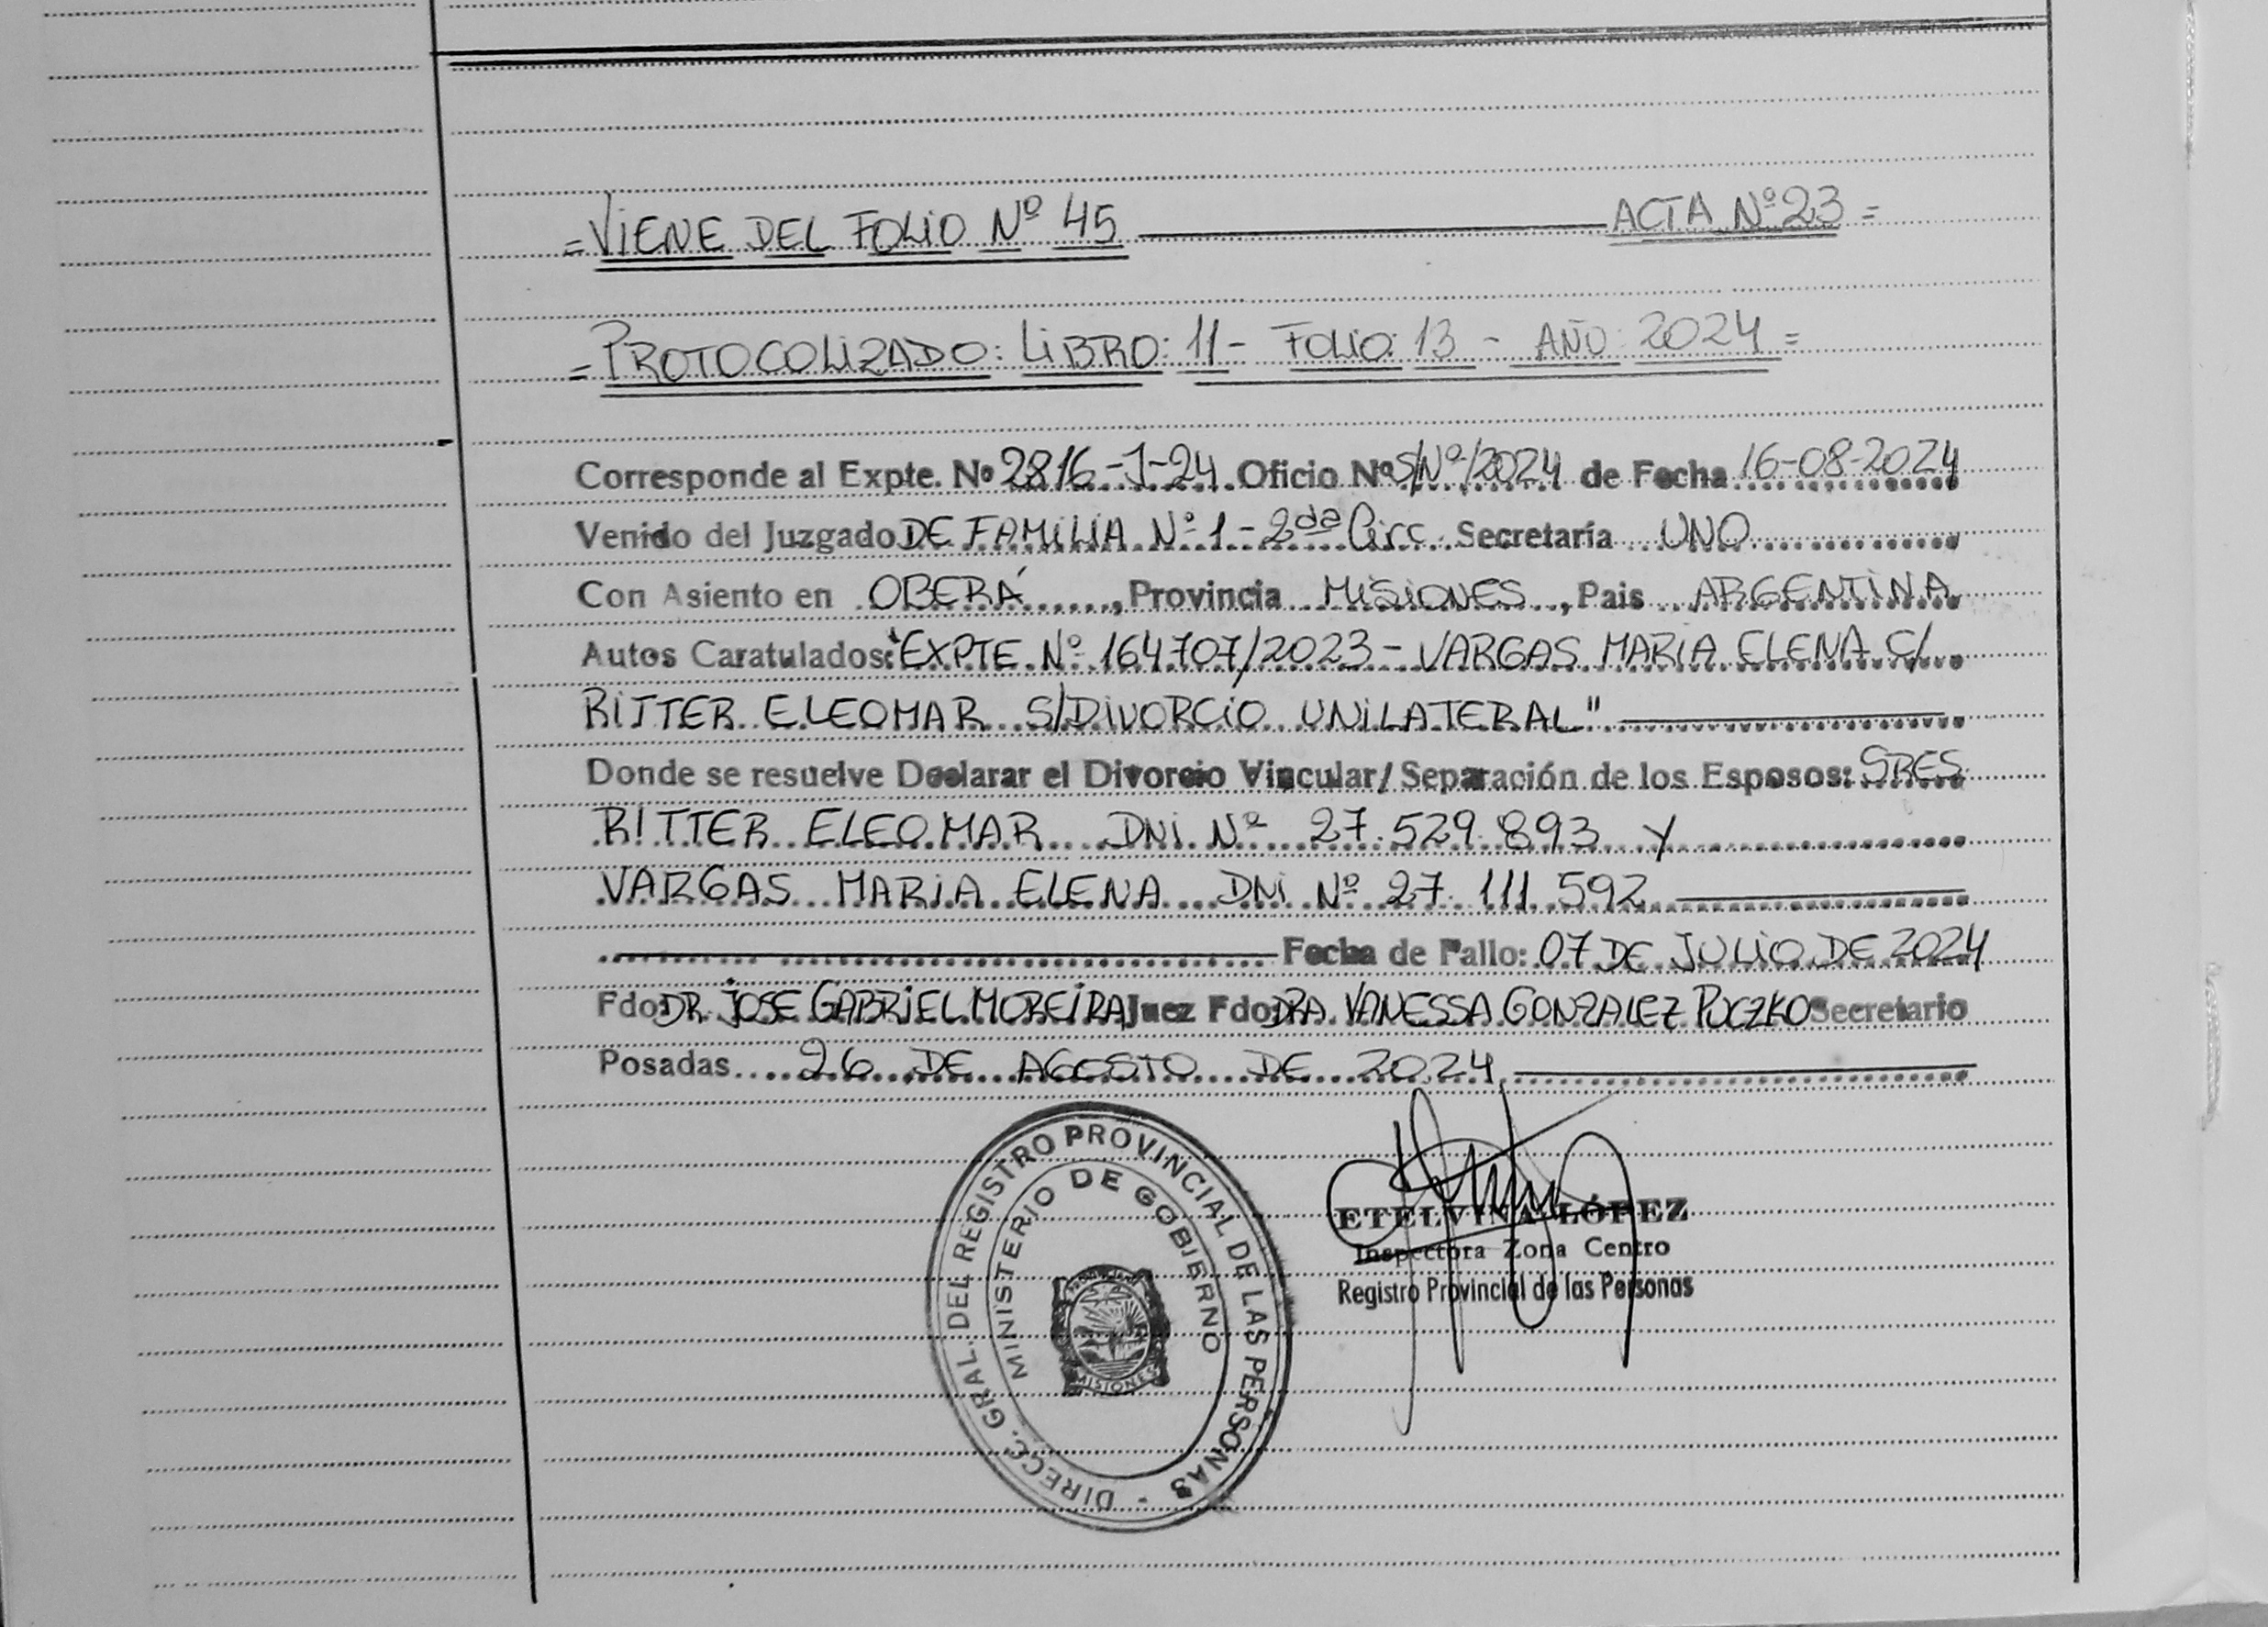 =VIENE DEL FOLIO Nº 45 ACTA Nº 23=
=PROTOCOLIZADO: LIBRO: 11- FOLIO: 13 - AÑO: 2024=
Corresponde al Expte. Nº 2816-J-24 Oficio Nº S/Nº/2024 de Fecha 16-08-2024
Venido del Juzgado DE FAMILIA Nº 1 - 2da Circ. Secretaría UNO
Con Asiento en OBERÁ, Provincia MISIONES, Pais ARGENTINA
Autos Caratulados: "EXPTE Nº 164707/2023 - VARGAS MARIA ELENA C/
RITTER ELEOMAR S/DIVORCIO UNILATERAL"
Donde se resuelve Declarar el Divorcio Vincular/ Separación de los Esposos: SRES
RITTER ELEOMAR DNI Nº 27.529.893 Y
VARGAS MARIA ELENA DNI Nº 27.111.592
Fecha de Fallo: 07 DE JULIO DE 2024
Fdo: DR. JOSE GABRIEL MOREIRA Juez Fdo: DRA. VANESSA GONZALEZ PUCZKO Secretario
Posadas 26 DE AGOSTO DE 2024
DIRECC. GRAL. DEL REGISTRO PROVINCIAL DE LAS PERSONAS -
MINISTERIO DE GOBIERNO
MISIONES
ETELVINA LÓPEZ
Inspectora Zona Centro
Registro Provincial de las Personas